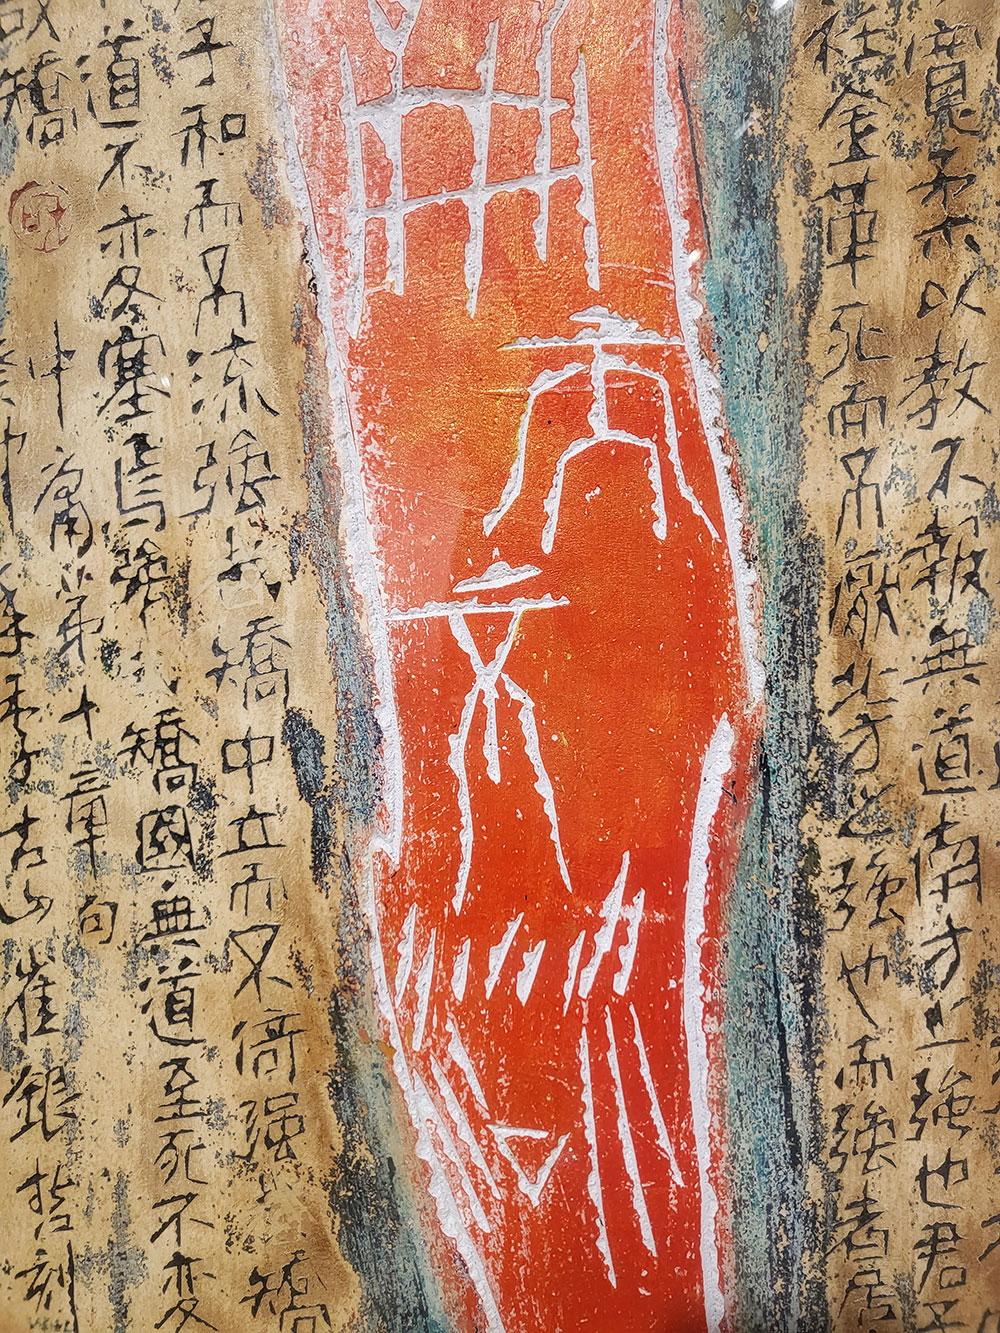 寬柔以教不報無道南方之強也君子
衽金革死而不厭北方之強也而強者居
子和而不流強哉矯中立而不倚強哉矯
道不変塞焉強哉矯國無道至死不変
哉矯
中庸第十章句
古山崔銀哲刻